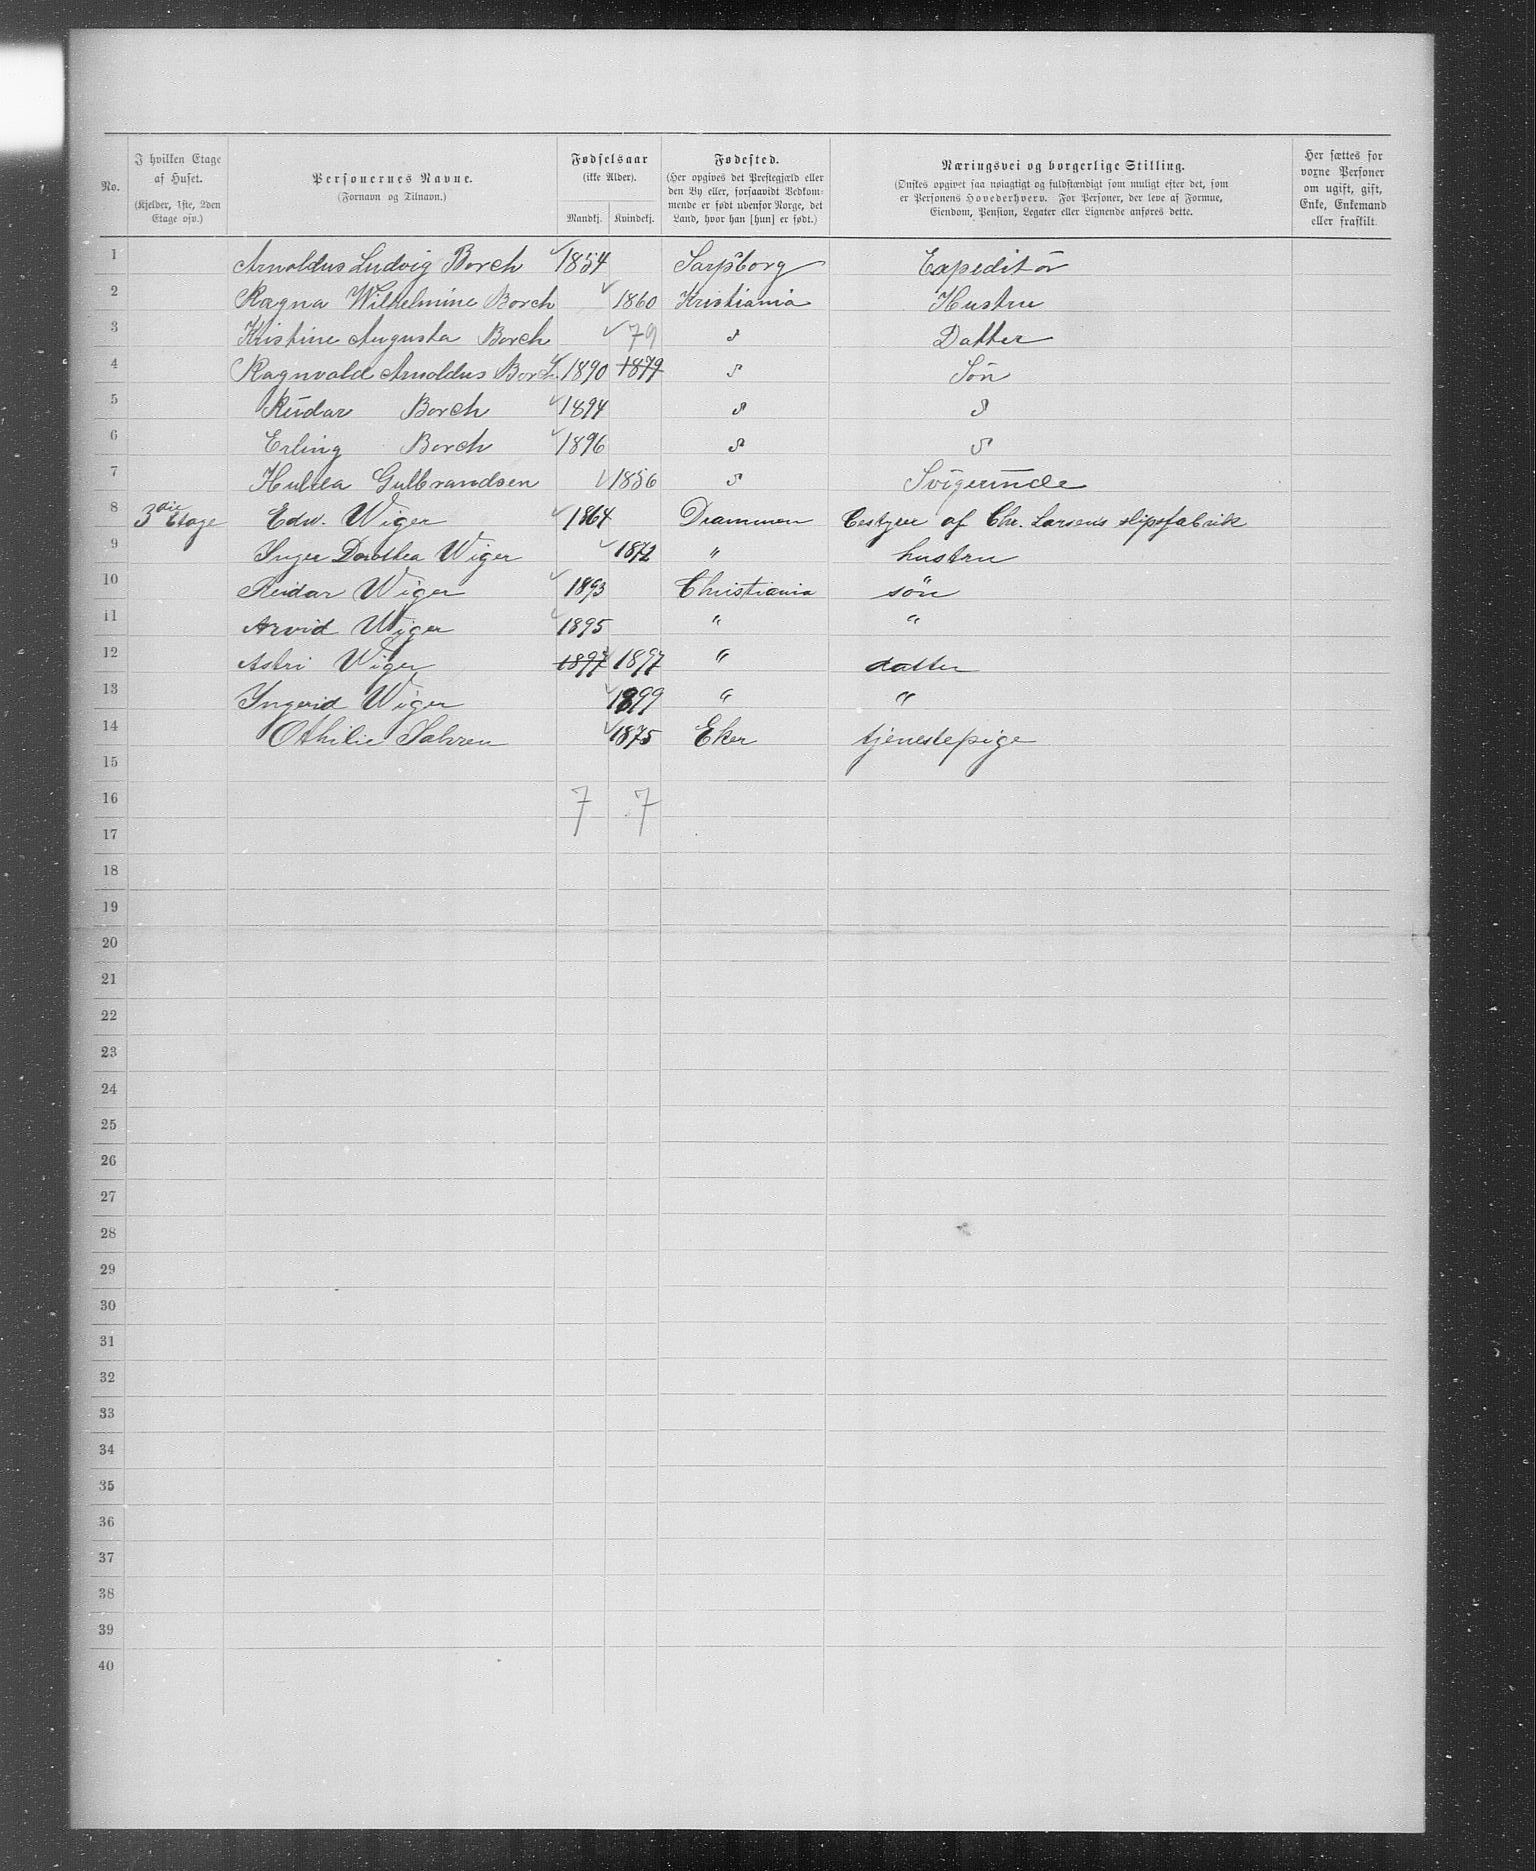 No. I hvilken Etage af Huset. (Kjelder, 1ste, 2den Etage osv.) Personernes Navne. (Fornavn og Tilnavn.) Fødselsaar (ikke Alder). Mandkj. Kvindekj. Fødested. (Her opgives det Prestegjæld eller den By eller, forsaavidt Vedkommende er født udenfor Norge, det Land, hvor han [hun] er født.) Næringsvei og borgerlige Stilling. (Ønskes opgivet saa nøiagtigt og fuldstændigt som muligt efter det, som er Personens Hovederhverv. For Personer, der leve af Formue, Eiendom, Pension, Legater eller Lignende anføres dette. Her sættes for vorne Personer om ugift, gift, Enke, Enkemand eller fraskilt.
1 Arnoldus Ludvig Borch 1854 Sarpsborg Expeditör
2 Ragna Wilhelmine Borch 1860 Kristiania Hustru
3 Kristine Augusta Borch 79 s Datter
4 Ragnvald Arnoldus Borch 1890 1879 s Sön
5 Reidar Borch 1894 s s
6 Erling Borch 1896 s s
7 Hulda Gulbrandsen 1856 s
8 3die Etage Edw. Wiger 1864 Drammen bestyrer af Chr. Larsens slipsfabrik
9 Inger Dorothea Wiger 1872 " hustru
10 Reidar Wiger 1893 Christiania sön
11 Arvid Wiger 1895 " "
12 Astri Wiger 1897 1897 " datter
13 Yngerid Wiger 1899 " "
14 Othilie 1875 Eker tjenestepige
15
16 7 7
17
18
19
20
21
22
23
24
25
26
27
28
29
30
31
32
33
34
35
36
37
38
39
40